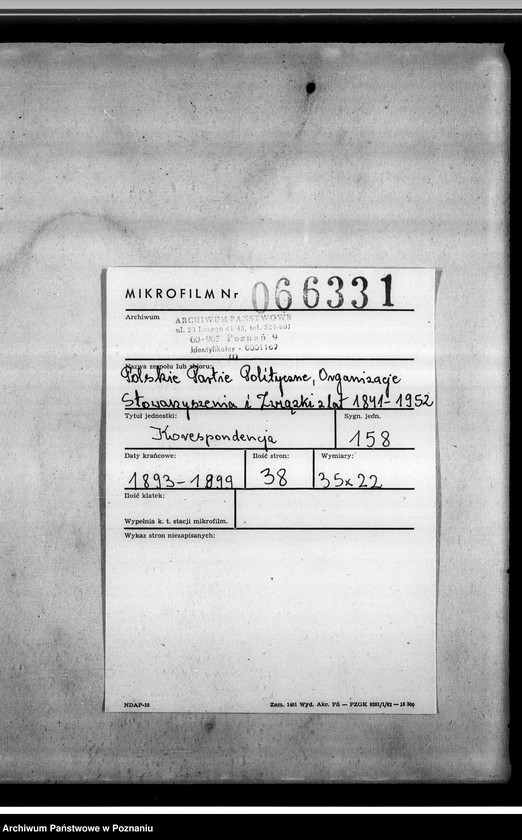 MIKROFILM Nr 066331
Archiwum
ARCHIWUM PAŃSTWOWE
ul. 23 Lutego 41/43, tel. 524-601
60-967 Poznań 9
Identyfikator - 0001167
Nazwa zespołu lub zbioru:
Polskie Partie Polityczne, Organizacje
Stowarzyszenia i Związki z lat 1841-1952
Tytuł jednostki:
Sygn. jedn.
Korespondencja
158
Daty krańcowe:
Ilość stron:
Wymiary:
1893-1899
38
35x22
Ilość klatek:
Wypełnia k. t. stacji mikrofilm.
Wykaz stron niezapisanych:
NDAP-10
Zam. 1401 Wyd. Akc. Pń — PZGK
Archiwum Państwowe w Poznaniu